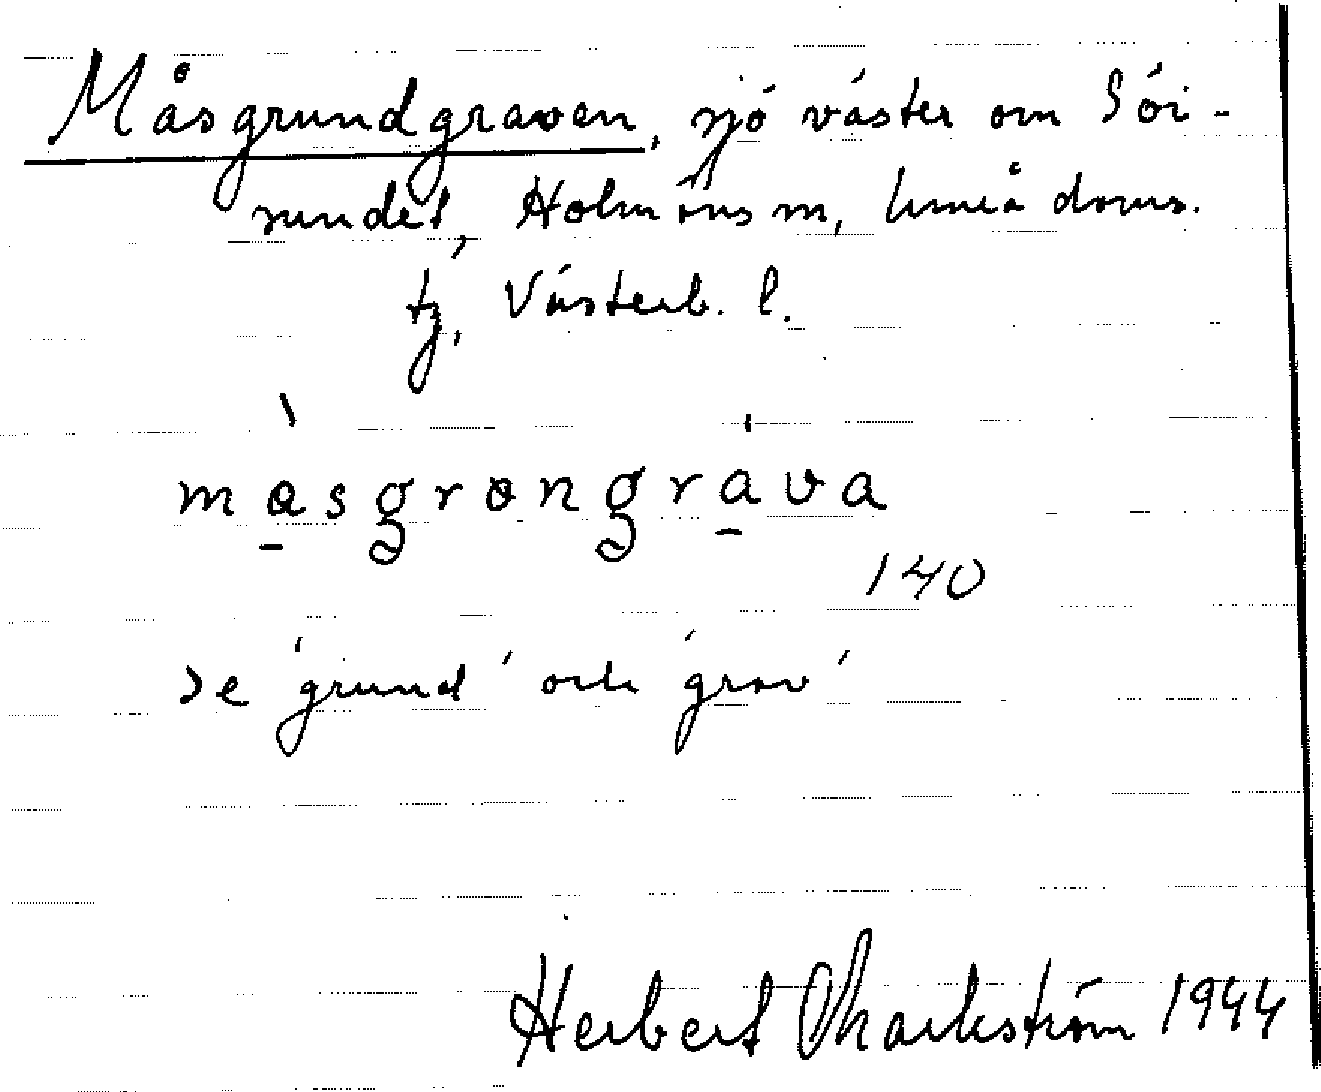 Måsgrundgraven, sjö väster om Sör-
sundet, Holmöns sn, Umeå doms.
tj, Västerb. l.
masgrøngrava
140
se 'grund' och 'grav'
Herbert Markström 1944